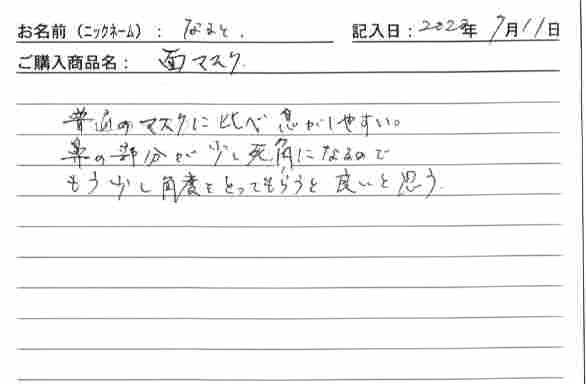 お名前（ニックネーム）： なると. 記入日：2022年 7月11日
ご購入商品名： 面マスク.
普通のマスクに比べ息がしやすい。
鼻の部分が少し死角になるので
もう少し角度をとってもらうと良いと思う.